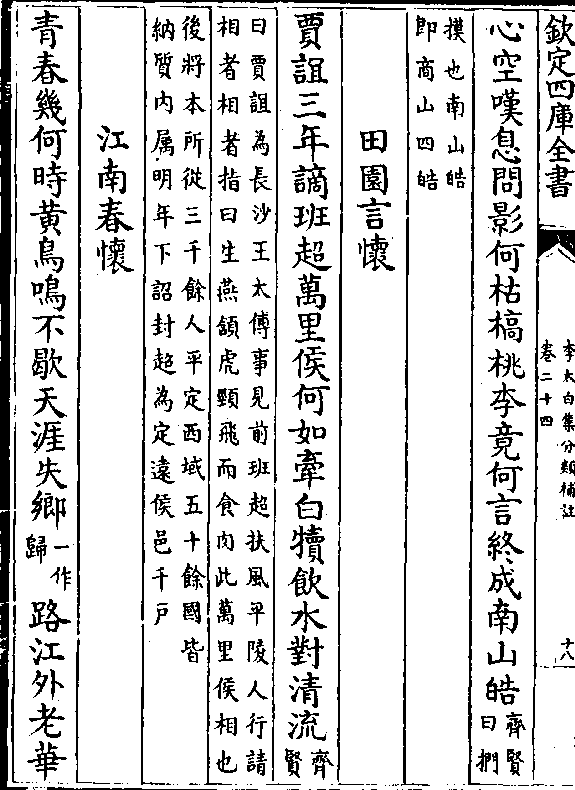 欽定四庫全書
李太白集分類補註
卷二十四
十八
心空嘆息問影何枯槁桃李竟何言終成南山皓齊賢
曰捫
摸也南山皓
即商山四皓
田園言懷
賈誼三年謫班超萬里侯何如牽白犢飲水對清流齊
賢
曰賈誼為長沙王太傅事見前班超扶風平陵人行請
相者相者指曰生燕頷虎頸飛而食肉此萬里侯相也
後將本所從三千餘人平定西域五十餘國皆
納質内属明年下詔封超為定遠侯邑千戸
江南春懷
青春幾何時黄鳥鳴不歇天涯失鄉一作
歸路江外老華